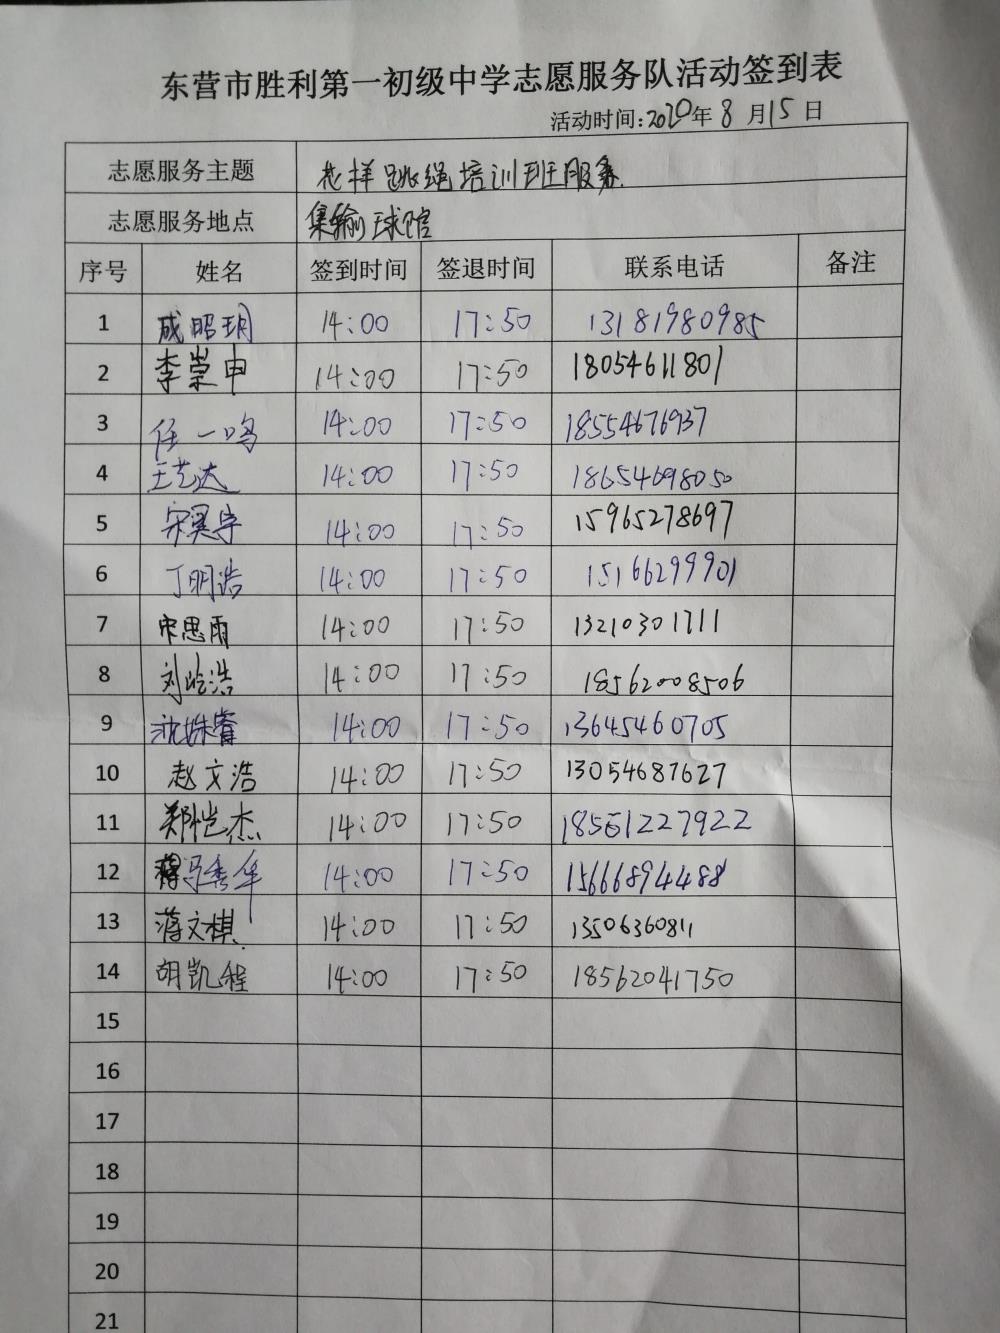 东营市胜利第一初级中学志愿服务队活动签到表
活动时间:2020年8月15日
志愿服务主题 花样跳绳培训班服务
志愿服务地点 集输球馆
序号 姓名 签到时间 签退时间 联系电话 备注
1 成昭玥 14:00 17:50 13181980985
2 李崇申 14:00 17:50 18054611801
3 任一鸣 14:00 17:50 18554676937
4 王艺达 14:00 17:50 18654698050
5 宋昊宇 14:00 17:50 15965278697
6 丁明浩 14:00 17:50 15166299901
7 宋思雨 14:00 17:50 13210301711
8 刘屹浩 14:00 17:50 18562008506
9 沈姝睿 14:00 17:50 13645460705
10 赵文浩 14:00 17:50 13054687627
11 郑恺杰 14:00 17:50 18561227922
12 马秀华 14:00 17:50 15666894488
13 蒋文棋 14:00 17:50 13506360811
14 胡凯程 14:00 17:50 18562041750
15
16
17
18
19
20
21